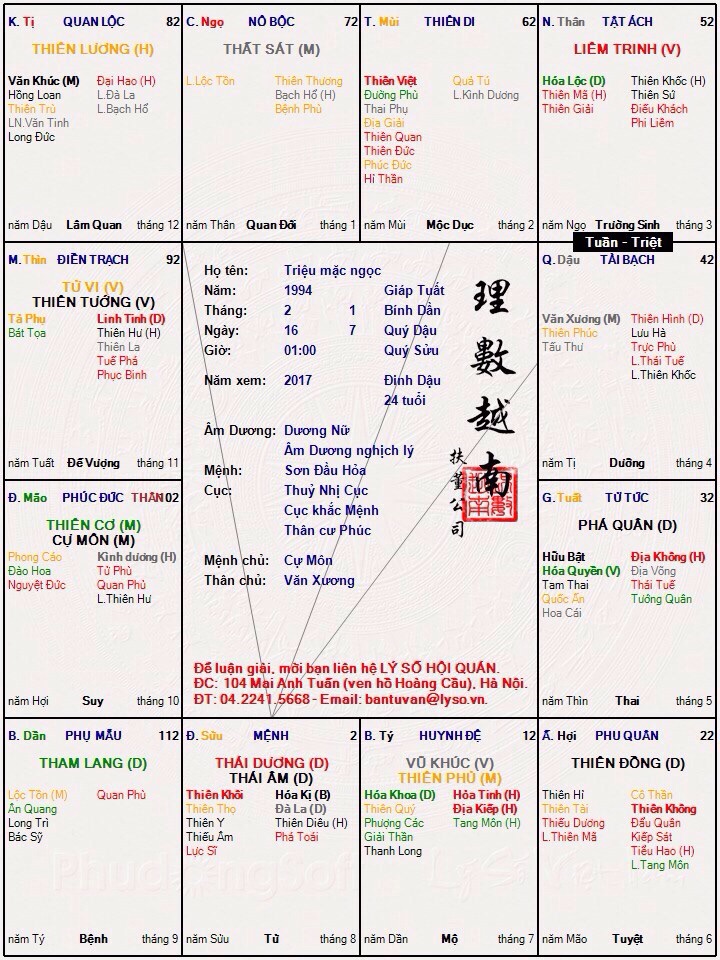 K. Tị QUAN LỘC 82
THIÊN LƯƠNG (H)
Văn Khúc (M) Đại Hao (H)
Hồng Loan L.Đà La
Thiên Trù L.Bạch Hổ
LN.Văn Tinh
Long Đức
năm Dậu Lâm Quan tháng 12
C. Ngọ NÔ BỘC 72
THẤT SÁT (M)
L.Lộc Tồn Thiên Thương
Bạch Hổ (H)
Bệnh Phù
năm Thân Quan Đới tháng 1
T. Mùi THIÊN DI 62
Thiên Việt Quả Tú
Đường Phù L.Kình Dương
Thai Phụ
Địa Giải
Thiên Quan
Thiên Đức
Phúc Đức
Hỉ Thần
năm Mùi Mộc Dục tháng 2
N. Thân TẬT ÁCH 52
LIÊM TRINH (V)
Hóa Lộc (D) Thiên Khốc (H)
Thiên Mã (H) Thiên Sứ
Thiên Giải Điếu Khách
Phi Liêm
năm Ngọ Trường Sinh tháng 3
Tuần - Triệt
M. Thìn ĐIỀN TRẠCH 92
TỬ VI (V)
THIÊN TƯỚNG (V)
Tả Phụ Linh Tinh (D)
Bát Tọa Thiên Hư (H)
Thiên La
Tuế Phá
Phục Binh
năm Tuất Đế Vượng tháng 11
Họ tên: Triệu mặc ngọc
Năm: 1994 Giáp Tuất
Tháng: 2 1 Bính Dần
Ngày: 16 7 Quý Dậu
Giờ: 01:00 Quý Sửu
Năm xem: 2017 Đinh Dậu
24 tuổi
Âm Dương: Dương Nữ
Âm Dương nghịch lý
Mệnh: Sơn Đầu Hỏa
Cục: Thuỷ Nhị Cục
Cục khắc Mệnh
Thân cư Phúc
Mệnh chủ: Cự Môn
Thân chủ: Văn Xương
理數越南
扶董公司
Để luận giải, mời bạn liên hệ LÝ SỐ HỘI QUÁN.
ĐC: 104 Mai Anh Tuấn (ven hồ Hoàng Cầu), Hà Nội.
ĐT: 04.2241.5668 - Email: bantuvan@lyso.vn.
Q. Dậu TÀI BẠCH 42
Văn Xương (M) Thiên Hình (D)
Thiên Phúc Lưu Hà
Tấu Thư Trực Phù
L.Thái Tuế
L.Thiên Khốc
năm Tị Dưỡng tháng 4
Đ. Mão PHÚC ĐỨC THÂN 102
THIÊN CƠ (M)
CỰ MÔN (M)
Phong Cáo Kình dương (H)
Đào Hoa Tử Phù
Nguyệt Đức Quan Phủ
L.Thiên Hư
năm Hợi Suy tháng 10
G. Tuất TỬ TỨC 32
PHÁ QUÂN (D)
Hữu Bật Địa Không (H)
Hóa Quyền (V) Địa Võng
Tam Thai Thái Tuế
Quốc Ấn Tướng Quân
Hoa Cái
năm Thìn Thai tháng 5
B. Dần PHỤ MẪU 112
THAM LANG (D)
Lộc Tồn (M) Quan Phù
Ân Quang
Long Trì
Bác Sỹ
năm Tý Bệnh tháng 9
Đ. Sửu MỆNH 2
THÁI DƯƠNG (D)
THÁI ÂM (D)
Thiên Khôi Hóa Kị (B)
Thiên Thọ Đà La (D)
Thiên Y Thiên Diêu (H)
Thiếu Âm Phá Toái
Lực Sĩ
năm Sửu Tử tháng 8
B. Tý HUYNH ĐỆ 12
VŨ KHÚC (V)
THIÊN PHỦ (M)
Hóa Khoa (D) Hỏa Tinh (H)
Thiên Quý Địa Kiếp (H)
Phượng Các Tang Môn (H)
Giải Thần
Thanh Long
năm Dần Mộ tháng 7
Ấ. Hợi PHU QUÂN 22
THIÊN ĐỒNG (D)
Thiên Hỉ Cô Thần
Thiên Tài Thiên Không
Thiếu Dương Đẩu Quân
L.Thiên Mã Kiếp Sát
Tiểu Hao (H)
L.Tang Môn
năm Mão Tuyệt tháng 6